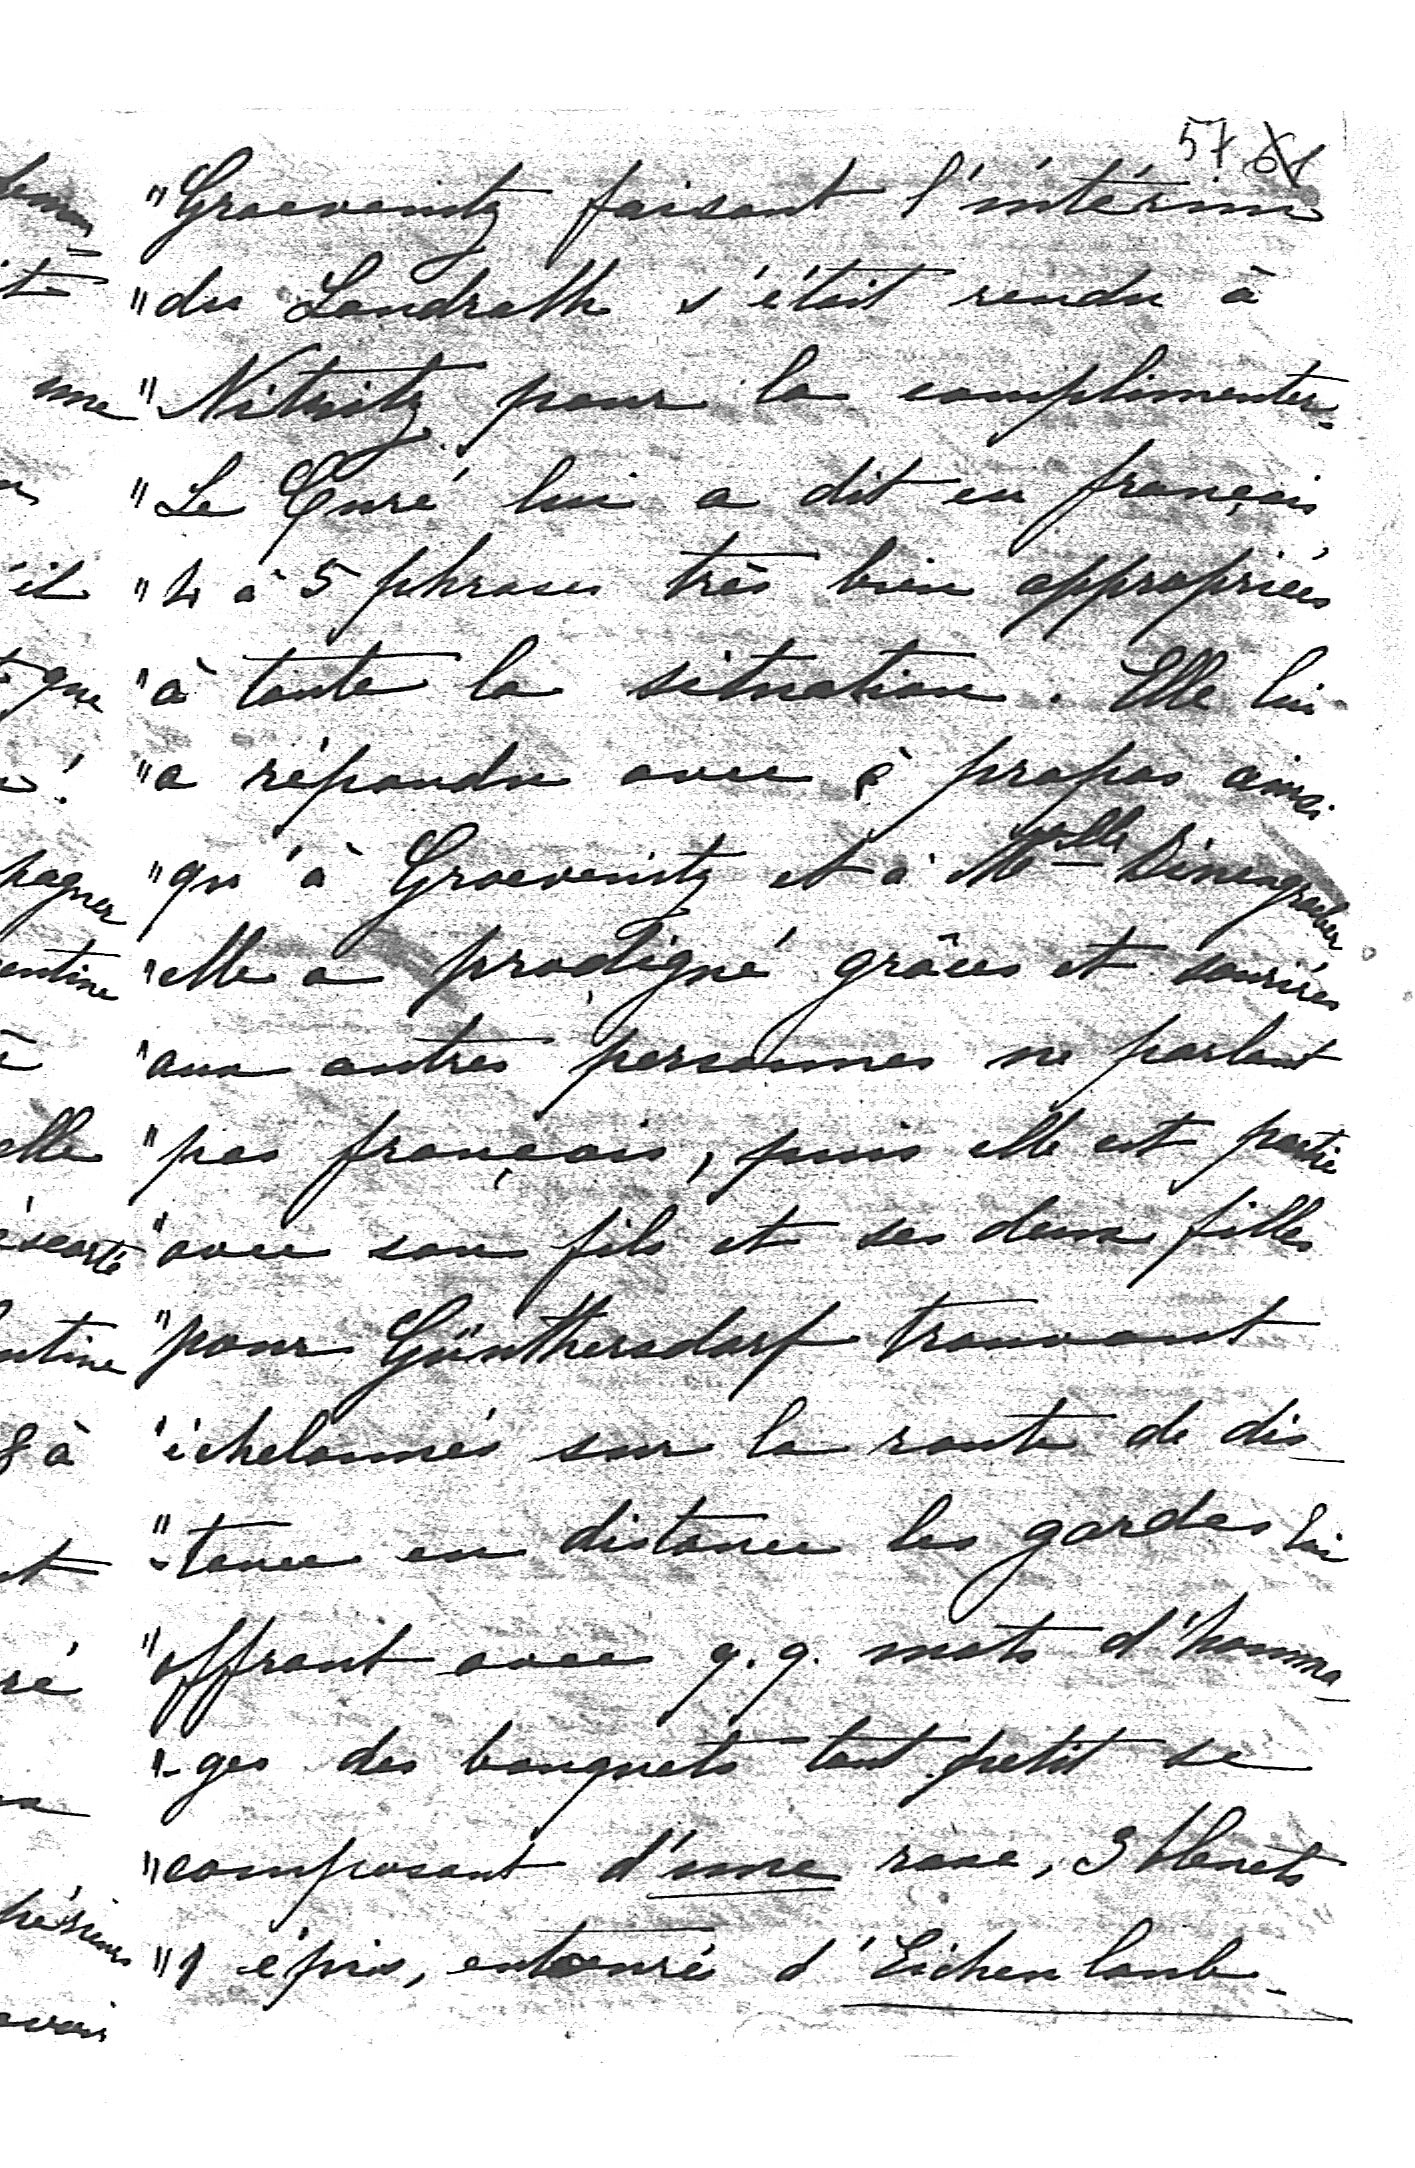 57 61
"Graevenitz faisant l'intérim
"du Landrath s'était rendu à
"Nitritz pour la complimenter.
"Le Curé lui a dit en français,
"4 à 5 phrases très bien appropriées
"à toute la situation. Elle lui
"a répondu avec à propos ainsi
"qu'à Graevenitz et à Melle
"elle a prodigué grâces et sourires
"aux autres personnes ne parlant
"pas français, puis elle est partie
"avec son fils et ses deux filles
"pour Günthersdorf trouvant
"échelonnés sur la route de dis-
"-tance en distance les gardes lui
"offrant avec q.q. mots d'homma-
"-ges des bouquets tout petit se
"composant d'une rose, 3 bleuets
"1 épis, entouré d'Eichenlaub-
une
il
que
pagner
entine
elle
escorté
ntine
8 à
et
ré
avais